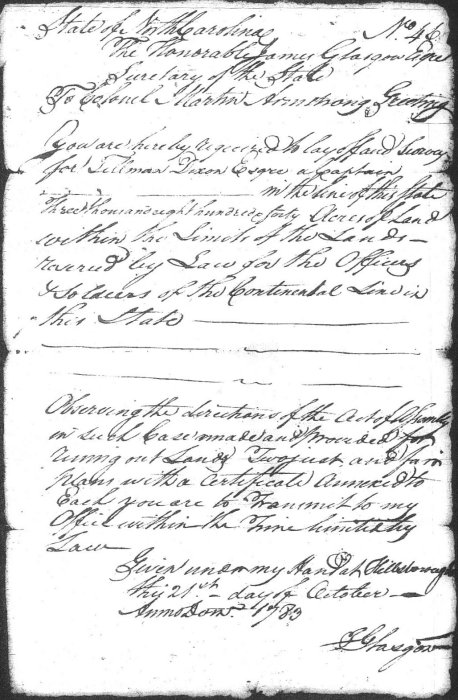 State of North Carolina No. 46
The Honorable James Glasgow Esqre
Secretary of the State
To Colonel Martin Armstrong Greeting
You are hereby required to lay off and survey
for Tillman Dixon Esqre a Captain
in the line of this State
Three thousand eight hundred forty Acres of Land
within the Limits of the Lands
reserved by Law for the Officers
& Soldiers of the Continental Line in
this State
Observing the directions of the Act of Assembly
in such Case made and provided for
runing out Lands Two just and fair
plans with a Certificate annexed to
Each you are to Transmit to my
Office within the Time limited by
Law
Given under my Hand at Hillsborough
this 21st day of October
Anno Dom. 1783
J Glasgow